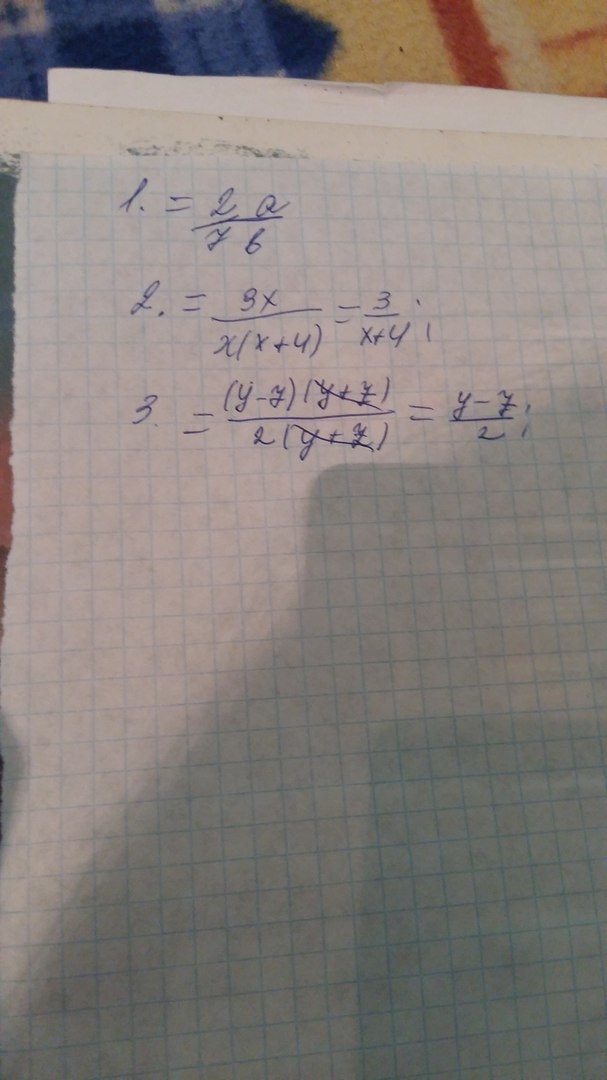 1. = 2 a / 7 b
2. = 3x / x(x+4) = 3 / x+4 ;
3. = (y-7)(y+7) / 2(y+7) = y-7 / 2 ;